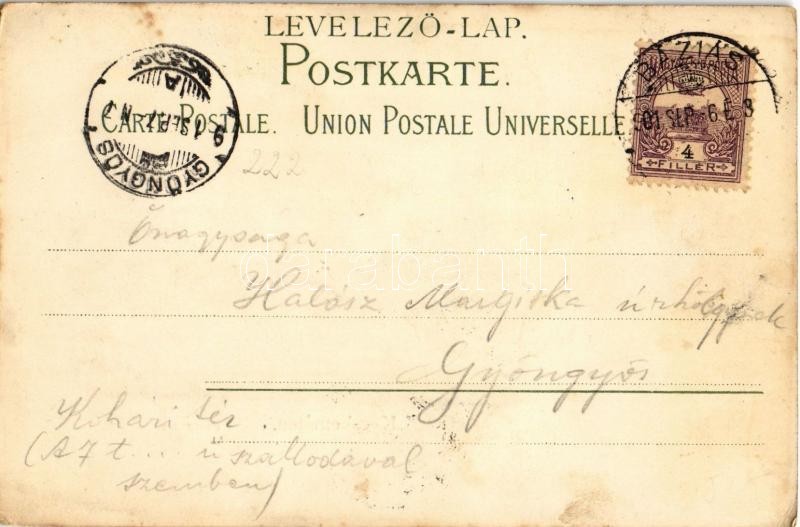 LEVELEZŐ-LAP.
POSTKARTE.
CARTE POSTALE. UNION POSTALE UNIVERSELLE
BÁZIÁS
901 SEP. 6 E. 8
4
FILLÉR
GYÖNGYÖS
222
Őnagysága
darabanth
Halász Margiska úrhölgynek
Gyöngyös
Kohári tér.
(A 7 t... u szállodával
szemben)